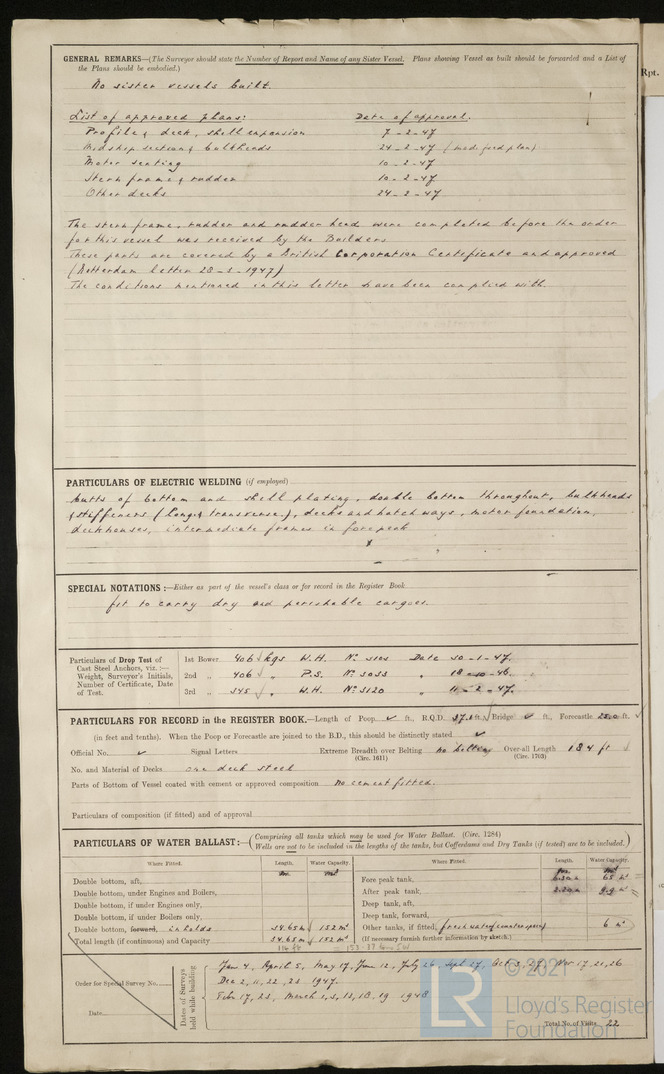 GENERAL REMARKS—(The Surveyor should state the Number of Report and Name of any Sister Vessel. Plans showing Vessel as built should be forwarded and a List of
the Plans should be embodied.)
Rpt.
No sister vessels built.
List of approved plans: Date of approval.
Profile & deck, shell expansion 7-2-47
Midship section & bulkheads 24-2-47 (mod. feed plan)
Motor seating 10-2-47
Stern frame & rudder 10-2-47
Other decks 24-2-47
The stern frame, rudder and rudder head were completed before the order
for this vessel was received by the Builders
These parts are covered by a British Corporation Certificate and approved
(Rotterdam letter 28-3-1947)
The conditions mentioned in this letter have been complied with.
PARTICULARS OF ELECTRIC WELDING (if employed)
butts of bottom and shell plating, double bottom throughout, bulkheads
& stiffeners (long. & transverse.), decks and hatchways, motor foundation,
deckhouses, intermediate frames in forepeak
SPECIAL NOTATIONS:—Either as part of the vessel's class or for record in the Register Book
fit to carry dry and perishable cargoes.
Particulars of Drop Test of
Cast Steel Anchors, viz.:—
Weight, Surveyor's Initials,
Number of Certificate, Date
of Test.
1st Bower 406 kgs W.H. No 3103 Date 30-1-47.
2nd „ 406 „ P.S. No 3033 „ 18-10-46.
3rd „ 345 „ W.H. No 3120 „ 11-2-47.
PARTICULARS FOR RECORD in the REGISTER BOOK.—Length of Poop ✓ ft., R.Q.D. 37.1 ft., Bridge ✓ ft., Forecastle 25.0 ft.
(in feet and tenths). When the Poop or Forecastle are joined to the B.D., this should be distinctly stated ✓
Official No. ✓ Signal Letters Extreme Breadth over Belting no belting Over-all Length 184 ft
(Circ. 1611) (Circ. 1703)
No. and Material of Decks one deck steel
Parts of Bottom of Vessel coated with cement or approved composition no cement fitted.
Particulars of composition (if fitted) and of approval
PARTICULARS OF WATER BALLAST:—(Comprising all tanks which may be used for Water Ballast. (Circ. 1284)
Wells are not to be included in the lengths of the tanks, but Cofferdams and Dry Tanks (if tested) are to be included.)
Where Fitted. Length. Water Capacity. Where Fitted. Length. Water Capacity.
m. m³ m. m³
Double bottom, aft, Fore peak tank, 65 m³
Double bottom, under Engines and Boilers, After peak tank,
Double bottom, if under Engines only, Deep tank, aft,
Double bottom, if under Boilers only, Deep tank, forward,
Double bottom, forward, in holds 34.65 m 152 m³ Other tanks, if fitted, 6 m³
Total length (if continuous) and Capacity 34.65 m 152 m³ (If necessary furnish further information by sketch.)
Order for Special Survey No.
Date
Dates of Surveys
held while building
June 4, April 5, May 17, June 12, July 26, Sept 27, Oct 3, 29, Nov 17, 21, 26
Dec 2, 11, 22, 23 1947.
Feb 17, 23, March 1, 3, 13, 18, 19 1948
Total No. of Visits 22
© 2021
LR
Lloyd's Register
Foundation